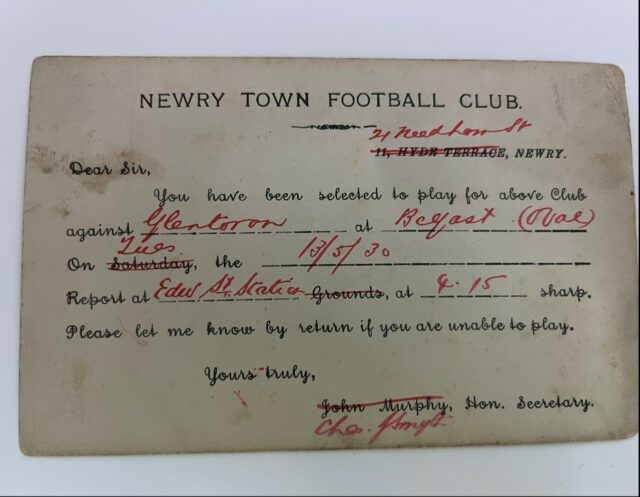 NEWRY TOWN FOOTBALL CLUB.
21 Needham St
11, HYDE TERRACE, NEWRY.
Dear Sir,
You have been selected to play for above Club
against Glentoran at Belfast (Oval)
Tues
On Saturday, the 13/5/30
Report at Edw St. Station Grounds, at 4.15 sharp.
Please let me know by return if you are unable to play.
Yours truly,
John Murphy, Hon. Secretary.
Chas. Smyth